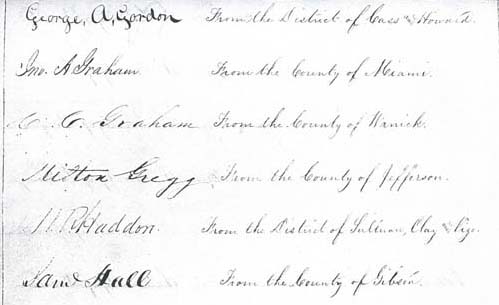 George, A, Gordon From the District of Cass and Howard.
Jno. A Graham From the County of Miami.
C. Graham From the County of
Milton Gregg From the County of Jefferson.
Haddon. From the District of Sullivan, Clay and Vigo.
Saml Hall From the County of Gibson.